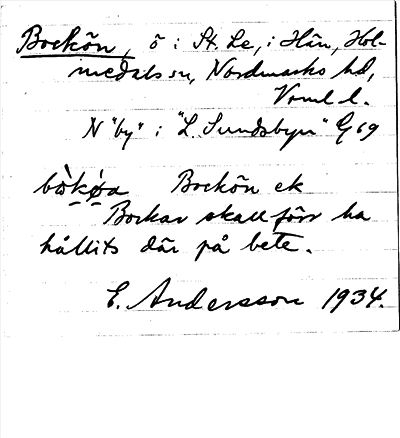 Bockön, ö i St. Le, i Hån, Hol-
medals sn, Nordmarks hd,
Vrml l.
N "by" i "L. Sundsbyn" G 69
bòkø̀a Bockön ek
Bockar skall förr ha
hållits där på bete.
E. Andersson 1934.